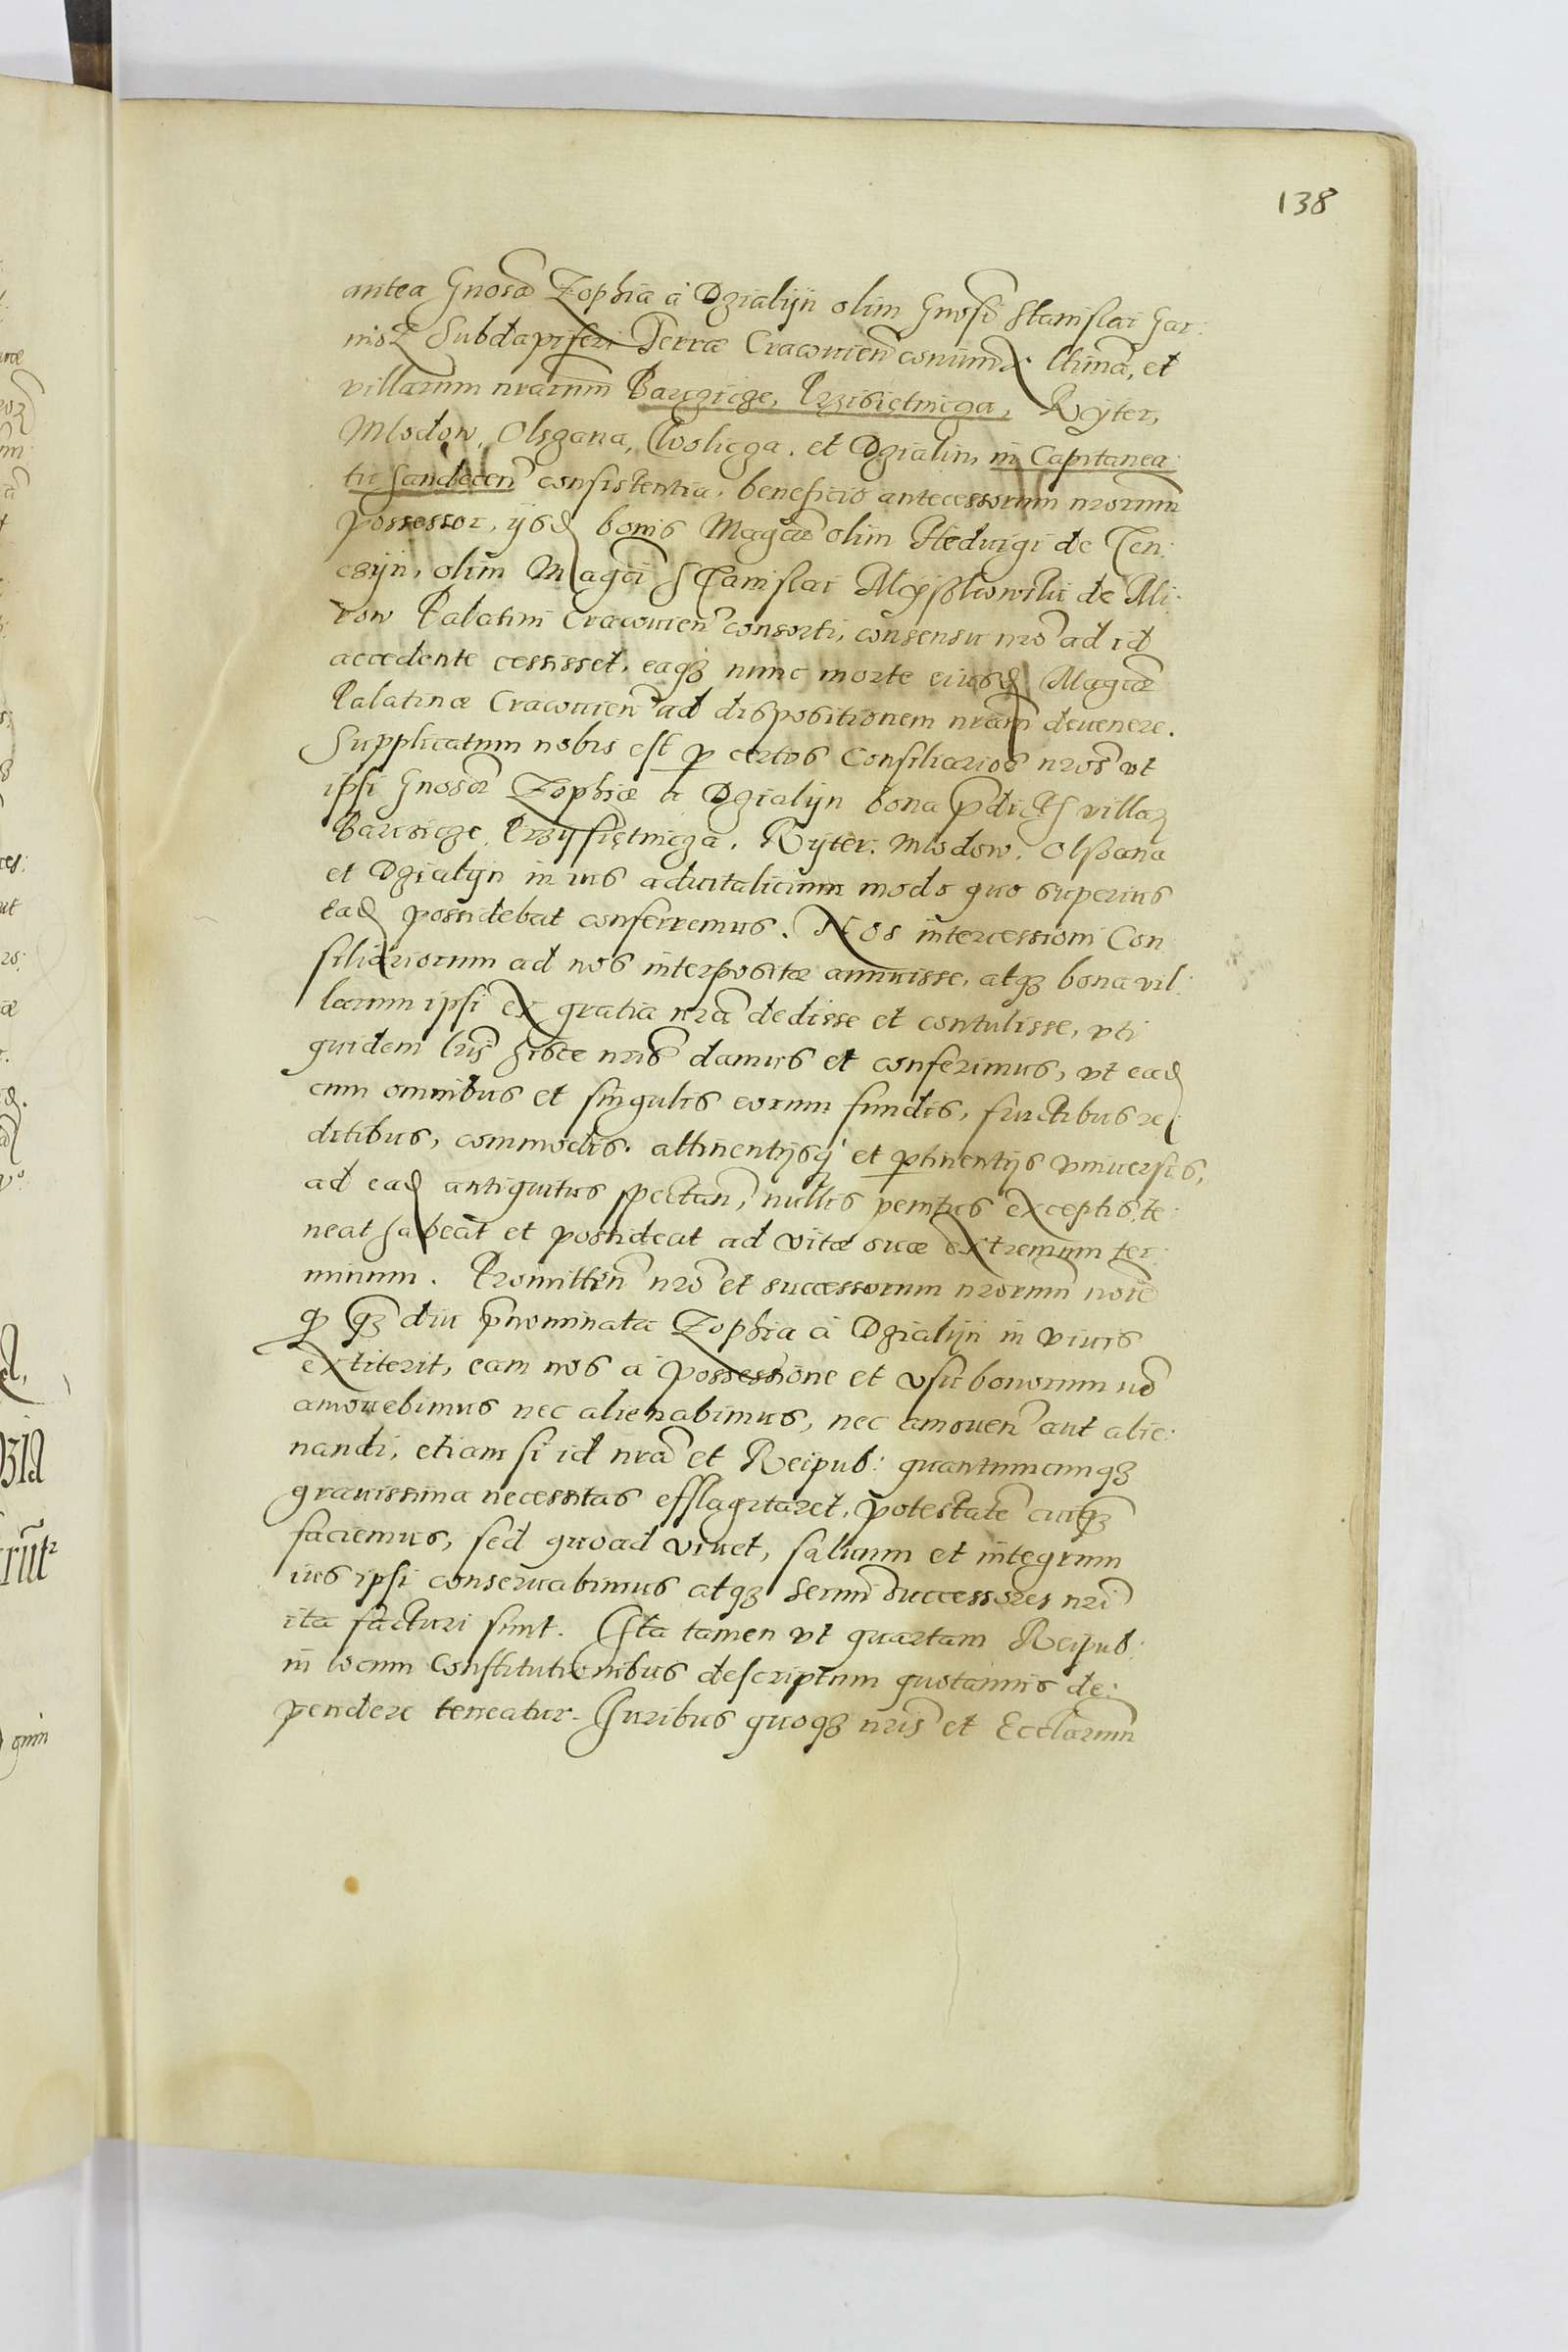 138
antea Gnosa Zophia à Dzialijn olim Gnosi Stanislai Gar:
nisz Subdapiferi Terræ Cracouien coniunx ltima, et
villarum nrarum Barczicze, Przisietnicza, Ryter,
Mlodow, Olszana, Wolicza. et Dzialin, in Capitanea:
tu Sandecen consistentia, beneficio antecessorum nrorum
possessor, ijsd bonis Magcæ olim Hedvigi de Ten:
czijn, olim Magci Stanislai Myszkowski de Mi:
row Palatini Cracouien consorti, consensu nro ad id
accedente cessisset, eaqz nunc morte eiusd Magcæ
Palatinæ Cracouien ad dispositionem nram deuenere.
Supplicatum nobis est p certos Consiliarios nros vt
ipsi Gnosæ Zophiæ a Dzialijn bona villaz
Barcsicze, Przysiętnicza, Ryter. Mlodow, Olszana
et Dzialijn in ius aduitalicium modo quo superius
ead possidebat conferremus. Nos intercessioni Con
siliariorum ad nos interpositæ annuisse, atqz bona vil:
larum ipsi ex gratia nra dedisse et contulisse, vti
quidem lris hisce nris damus et conferimus, vt ead
cum omnibus et singulis eorum fundis, fructibus re
ditibus, commodis, attinentijsq et ptinentijs vniuersis,
ad ead antiquitus spectan, nullis penitus exceptis te:
neat habeat et possideat ad vitæ suæ extremum ter:
minum. Promitten nro et successorum nrorum noie
q qz diu pnominata Zophia à Dzialijn in viuis
extiterit, eam nos à possessione et vsu bonorum no
amouebimus nec alienabimus, nec amouen aut alie:
nandi, etiam si id nra et Reipub: quantumcunqz
grauissima necessitas efflagitaret, potestate cuiqz
faciemus, sed quoad viuet, saluum et integrum
ius ipsi conseruabimus atqz Sermi successores nri
ita facturi sunt. Ita tamen vt quartam Reipub:
in locum Constitutionibus descriptum quotannis de:
pendere teneatur. Juribus quoqz nris et Ecclarum